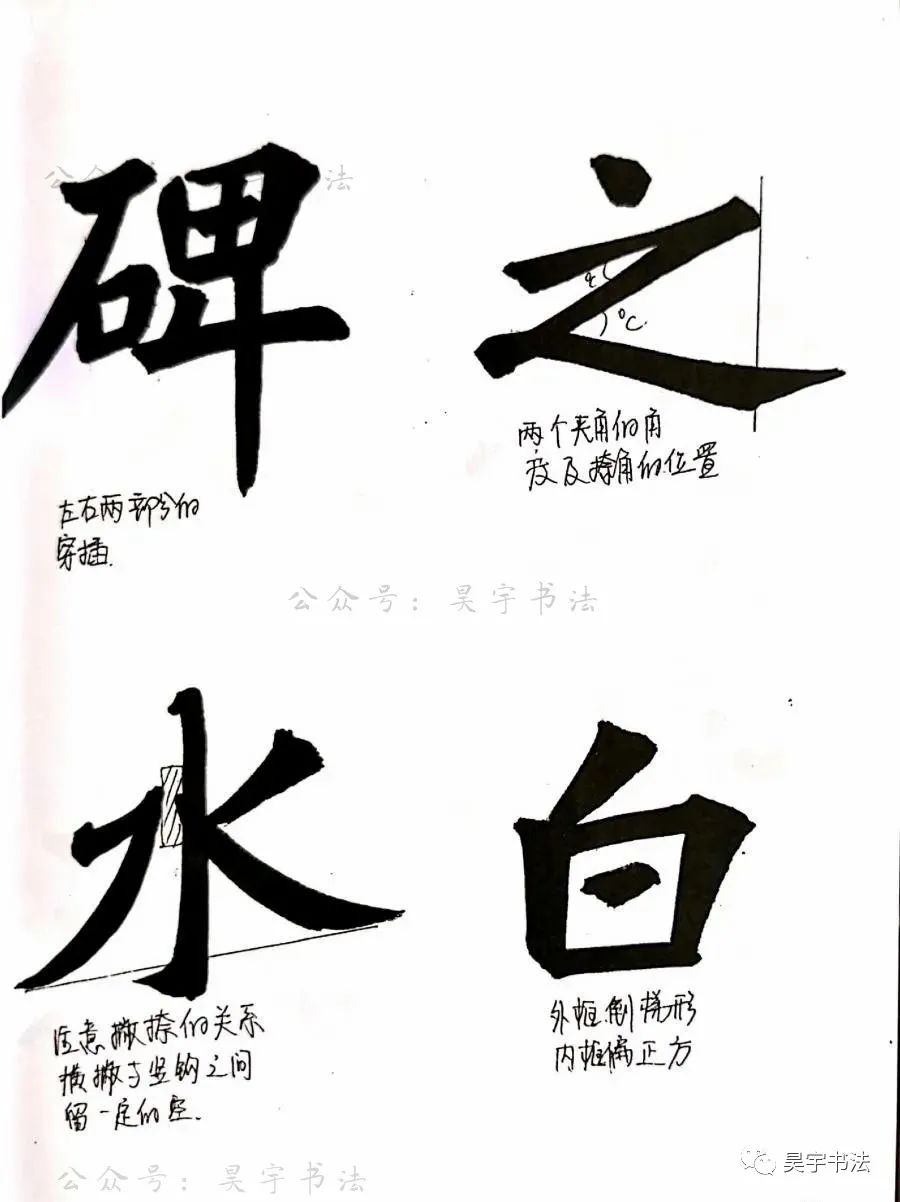 碑
之
公众号：昊宇书法
两个夹角的角
度及捺角的位置
左右两部分的
穿插.
公众号：昊宇书法
水
白
注意撇捺的关系
横撇与竖钩之间
留一定的空.
外框倒梯形
内框偏正方
公众号：昊宇书法
昊宇书法